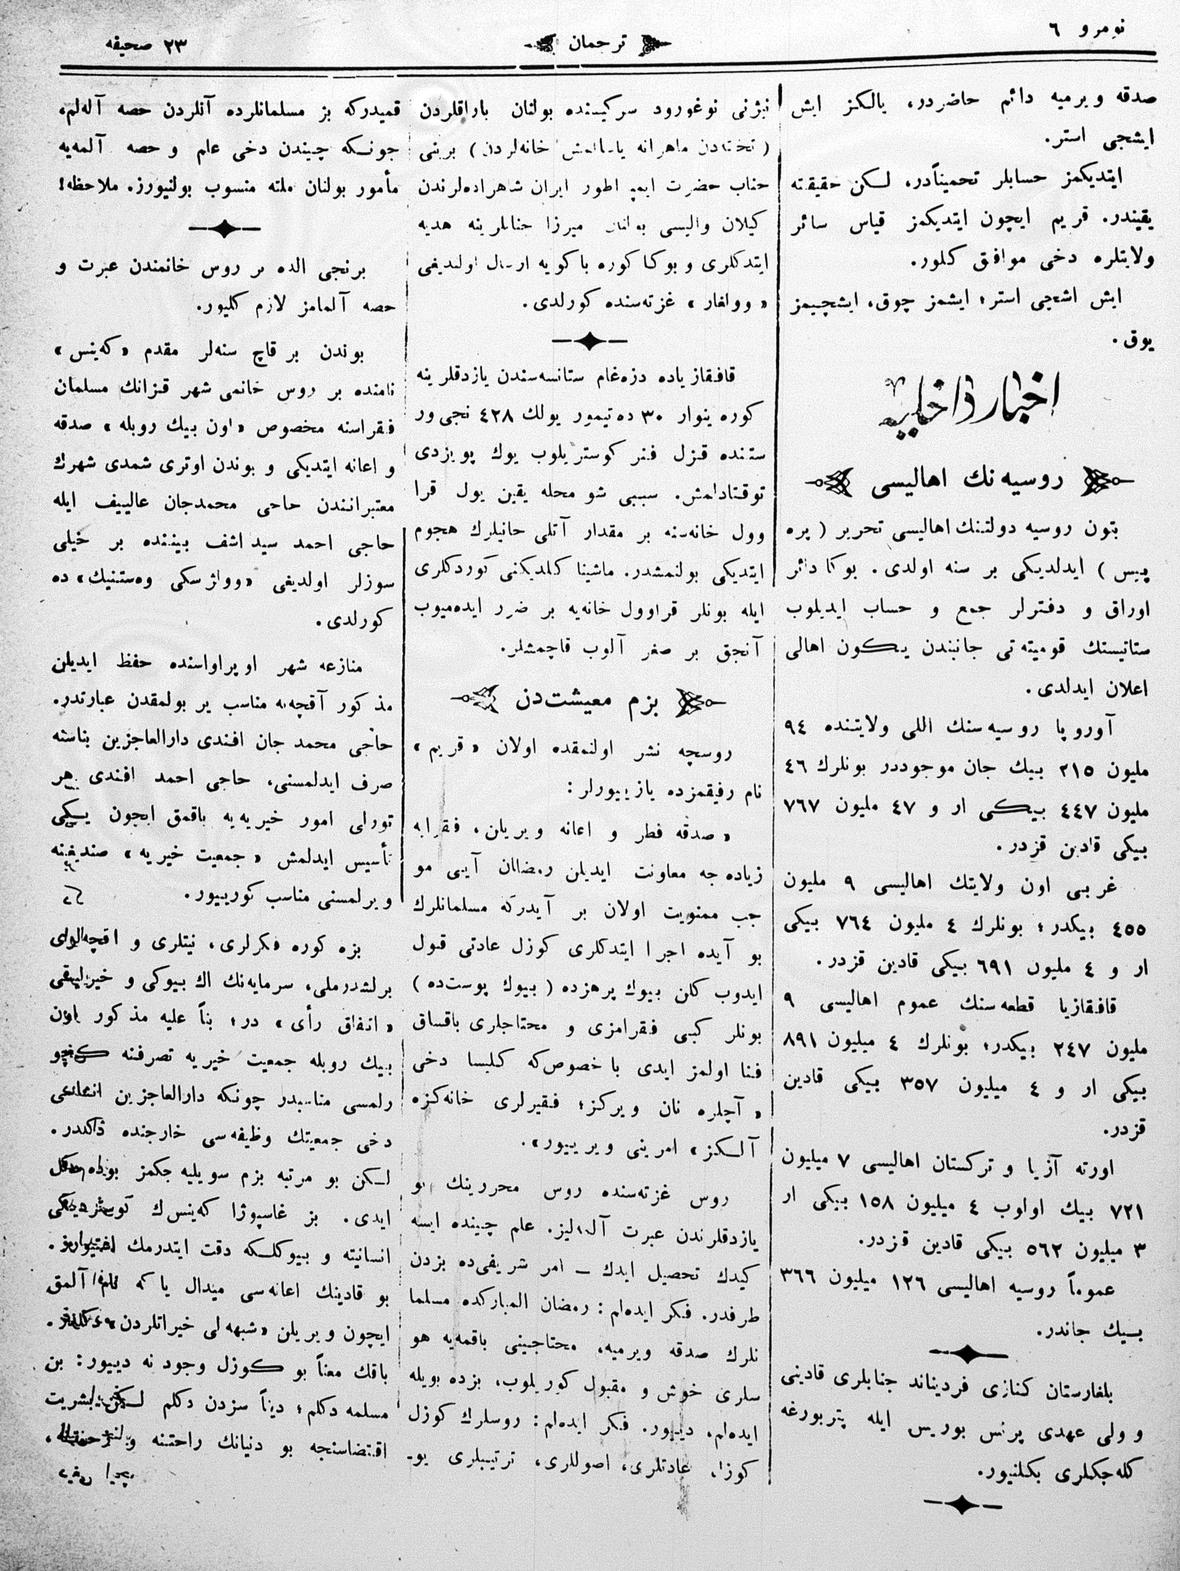 نومرو ٦
ترجمان
٢٣ صحیفه
صدقه ویرمیه دائم حاضردر، یالکز ایش
ایشجی استر.
ایتدیکمز حسابلر تحمیناًدر، لکن حقیقته
یقیندر. قریم ایچون ایتدیکمز قیاس سائر
ولایتلره دخی موافق کلور.
ایش اشجی استر؛ ایشمز چوق، ایشچیمز
یوق.
اخبار داخلیه
روسیه نك اهالیسی
بتون روسیه دولتنك اهالیسی تحریر ( پره
پیس ) ایدلدیکی بر سنه اولدی. بوکا دائر
اوراق و دفترلر جمع و حساب ایدیلوب
ستاتیستك قومیته تی جانبندن یکون اهالی
اعلان ایدلدی.
آوروپا روسیه سنك اللی ولایتنده ٩٤
ملیون ٢١٥ بیك جان موجوددر بونلرك ٤٦
ملیون ٤٤٧ بیکی ار و ٤٧ ملیون ٧٦٧
بیکی قادین قزدر.
غربی اون ولایتك اهالیسی ٩ ملیون
٤٥٥ بیکدر؛ بونلرك ٤ ملیون ٧٦٤ بیکی
ار و ٤ ملیون ٦٩١ بیکی قادین قزدر.
قافقازیا قطعه سنك عموم اهالیسی ٩
ملیون ٢٤٧ بیکدر؛ بونلرك ٤ میلیون ٨٩١
بیکی ار و ٤ میلیون ٣٥٧ بیکی قادین
قزدر.
اورته آزیا و ترکستان اهالیسی ٧ میلیون
٧٢١ بیك اولوب ٤ میلیون ١٥٨ بیکی ار
٣ میلیون ٥٦٢ بیکی قادین قزدر.
عموماً روسیه اهالیسی ١٢٦ میلیون ٣٦٦
بیك جاندر.
بلغارستان کنازی فردیناند جنابلری قادینی
و ولی عهدی پرنس بوریس ایله پتربورغه
کله جکلری بکلنیور.
نیژنی نوغورود سرکیسنده بولنان باراقلردن
( تختادن ماهرانه یاپالمش خانه لردن ) برینی
جناب حضرت ایمپراطور ایران شاهزاده لرندن
کیلان والیسی بولنان میرزا جنابلرینه هدیه
ایتدکلری و بوکا کوره باکویه ارسال اولندیغی
« وولغار » غزته سنده کورلدی.
قافقازیاده دزه غام ستانسه سندن یازدقلرینه
کوره ینوار ٣٠ ده تیمور یولك ٤٢٨ نجی ور
ستنده قزل فنر کوستریلوب یوك پویزدی
توقتادلمش. سببی شو محله یقین یول قرا
وول خانه سنه بر مقدار آتلی جانیلرك هجوم
ایتدیکی بولنمشدر. ماشینا کلمدیکنی کوردکلری
ایله بونلر قراوول خانه یه بر ضرر ایده میوب
آنجق بر صغر آلوب قاچمشلر.
بزم معیشت دن
روسچه نشر اولنمقده اولان « قریم »
نام رفیقمزده یازییورلر :
« صدقه فطر و اعانه ویریلن، فقرایه
زیاده جه معاونت ایدیلن رمضان آیی مو
جب ممنویت اولان بر آیدرکه مسلمانلرك
بو آیده اجرا ایتدکلری کوزل عادتی قبول
ایدوب کلن بیوك پرهزده ( بیوك پوست ده )
بونلر کبی فقرامزی و محتاجلری باقساق
فنا اولمز ایدی با خصوص که کلیسا دخی
« آچلره نان ویرکز؛ فقیرلری خانه کزه
آلکز » امرینی ویرییور ».
روس غزته سنده روس محررینك بو
یازدقلرندن عبرت آله لیز. علم چینده ایسه
کیدك تحصیل ایدك — امر شریفی ده بزدن
طرفدر. فکر ایده لم : رمضان المبارکده مسلما
نلرك صدقه ویرمیه، محتاجینی باقمه یه هو
سلری خوش و مقبول کوریلوب، بزده بویله
ایده لم، دییور. فکر ایده لم : روسلرك کوزل
کوزل عادتلری، اصوللری، ترتیبلری یو-
قمیدرکه بز مسلمانلرده آنلردن حصه آله لم،
جونکه چیندن دخی علم و حصه آلمه یه
مأمور بولنان ملته منسوب بولنیورز. ملاحظه !
برنجی الده بر روس خانمندن عبرت و
حصه آلمامز لازم کلیور.
بوندن بر قاچ سنه لر مقدم « که ینس »
نامنده بر روس خانمی شهر قزانك مسلمان
فقراسنه مخصوص « اون بیك روبله » صدقه
و اعانه ایتدیکی و بوندن اوتری شمدی شهرك
معتبرانندن حاجی محمدجان عالییف ایله
حاجی احمد سیداشف بیننده بر خیلی
سوزلر اولدیغی « وولژسکی وه ستنیك » ده
کورلدی.
منازعه شهر اوپراواسنده حفظ ایدیلن
مذکور آقچه یه مناسب یر بولمقدن عبارتدر.
حاجی محمد جان افندی دارالعاجزین بناسنه
صرف ایدلمسنی، حاجی احمد افندی هر
تورلی امور خیریه یه باقمق ایچون یکی
تأسیس ایدلمش « جمعیت خیریه » صندیغنه
ویرلمسنی مناسب کورییور.
بزه کوره فکرلری، نیتلری و اقچه لری
برلشدرملی، سرمایه نك اك بیوکی و خیرلیقی
« اتفاق رأی » در؛ بناً علیه مذکور اون
بیك روبله جمعیت خیریه تصرفنه کچو
رلمسی مناسبدر چونکه دارالعاجزین
دخی جمعیتك وظیفه سی خارجنده دکلدر.
لکن بو مرتبه بزم سویلیه جکمز بو دکل
ایدی. بز غاسپوژا که ینس ك کوستردیکی
انسانیته و بیوکلکه دقت ایتدرمك
بو قادینك اعانه سی میدال یا که نام آلمق
ایچون ویریلن « شبهه لی خیراتلردن » دکلدر.
باقك معناً بو کوزل وجود نه دییور : بن
مسلمه دکلم؛ دیناً سزدن دکلم لکن بشریت
اقتضاسنجه بو دنیانك راحتنه و زحمتنه،